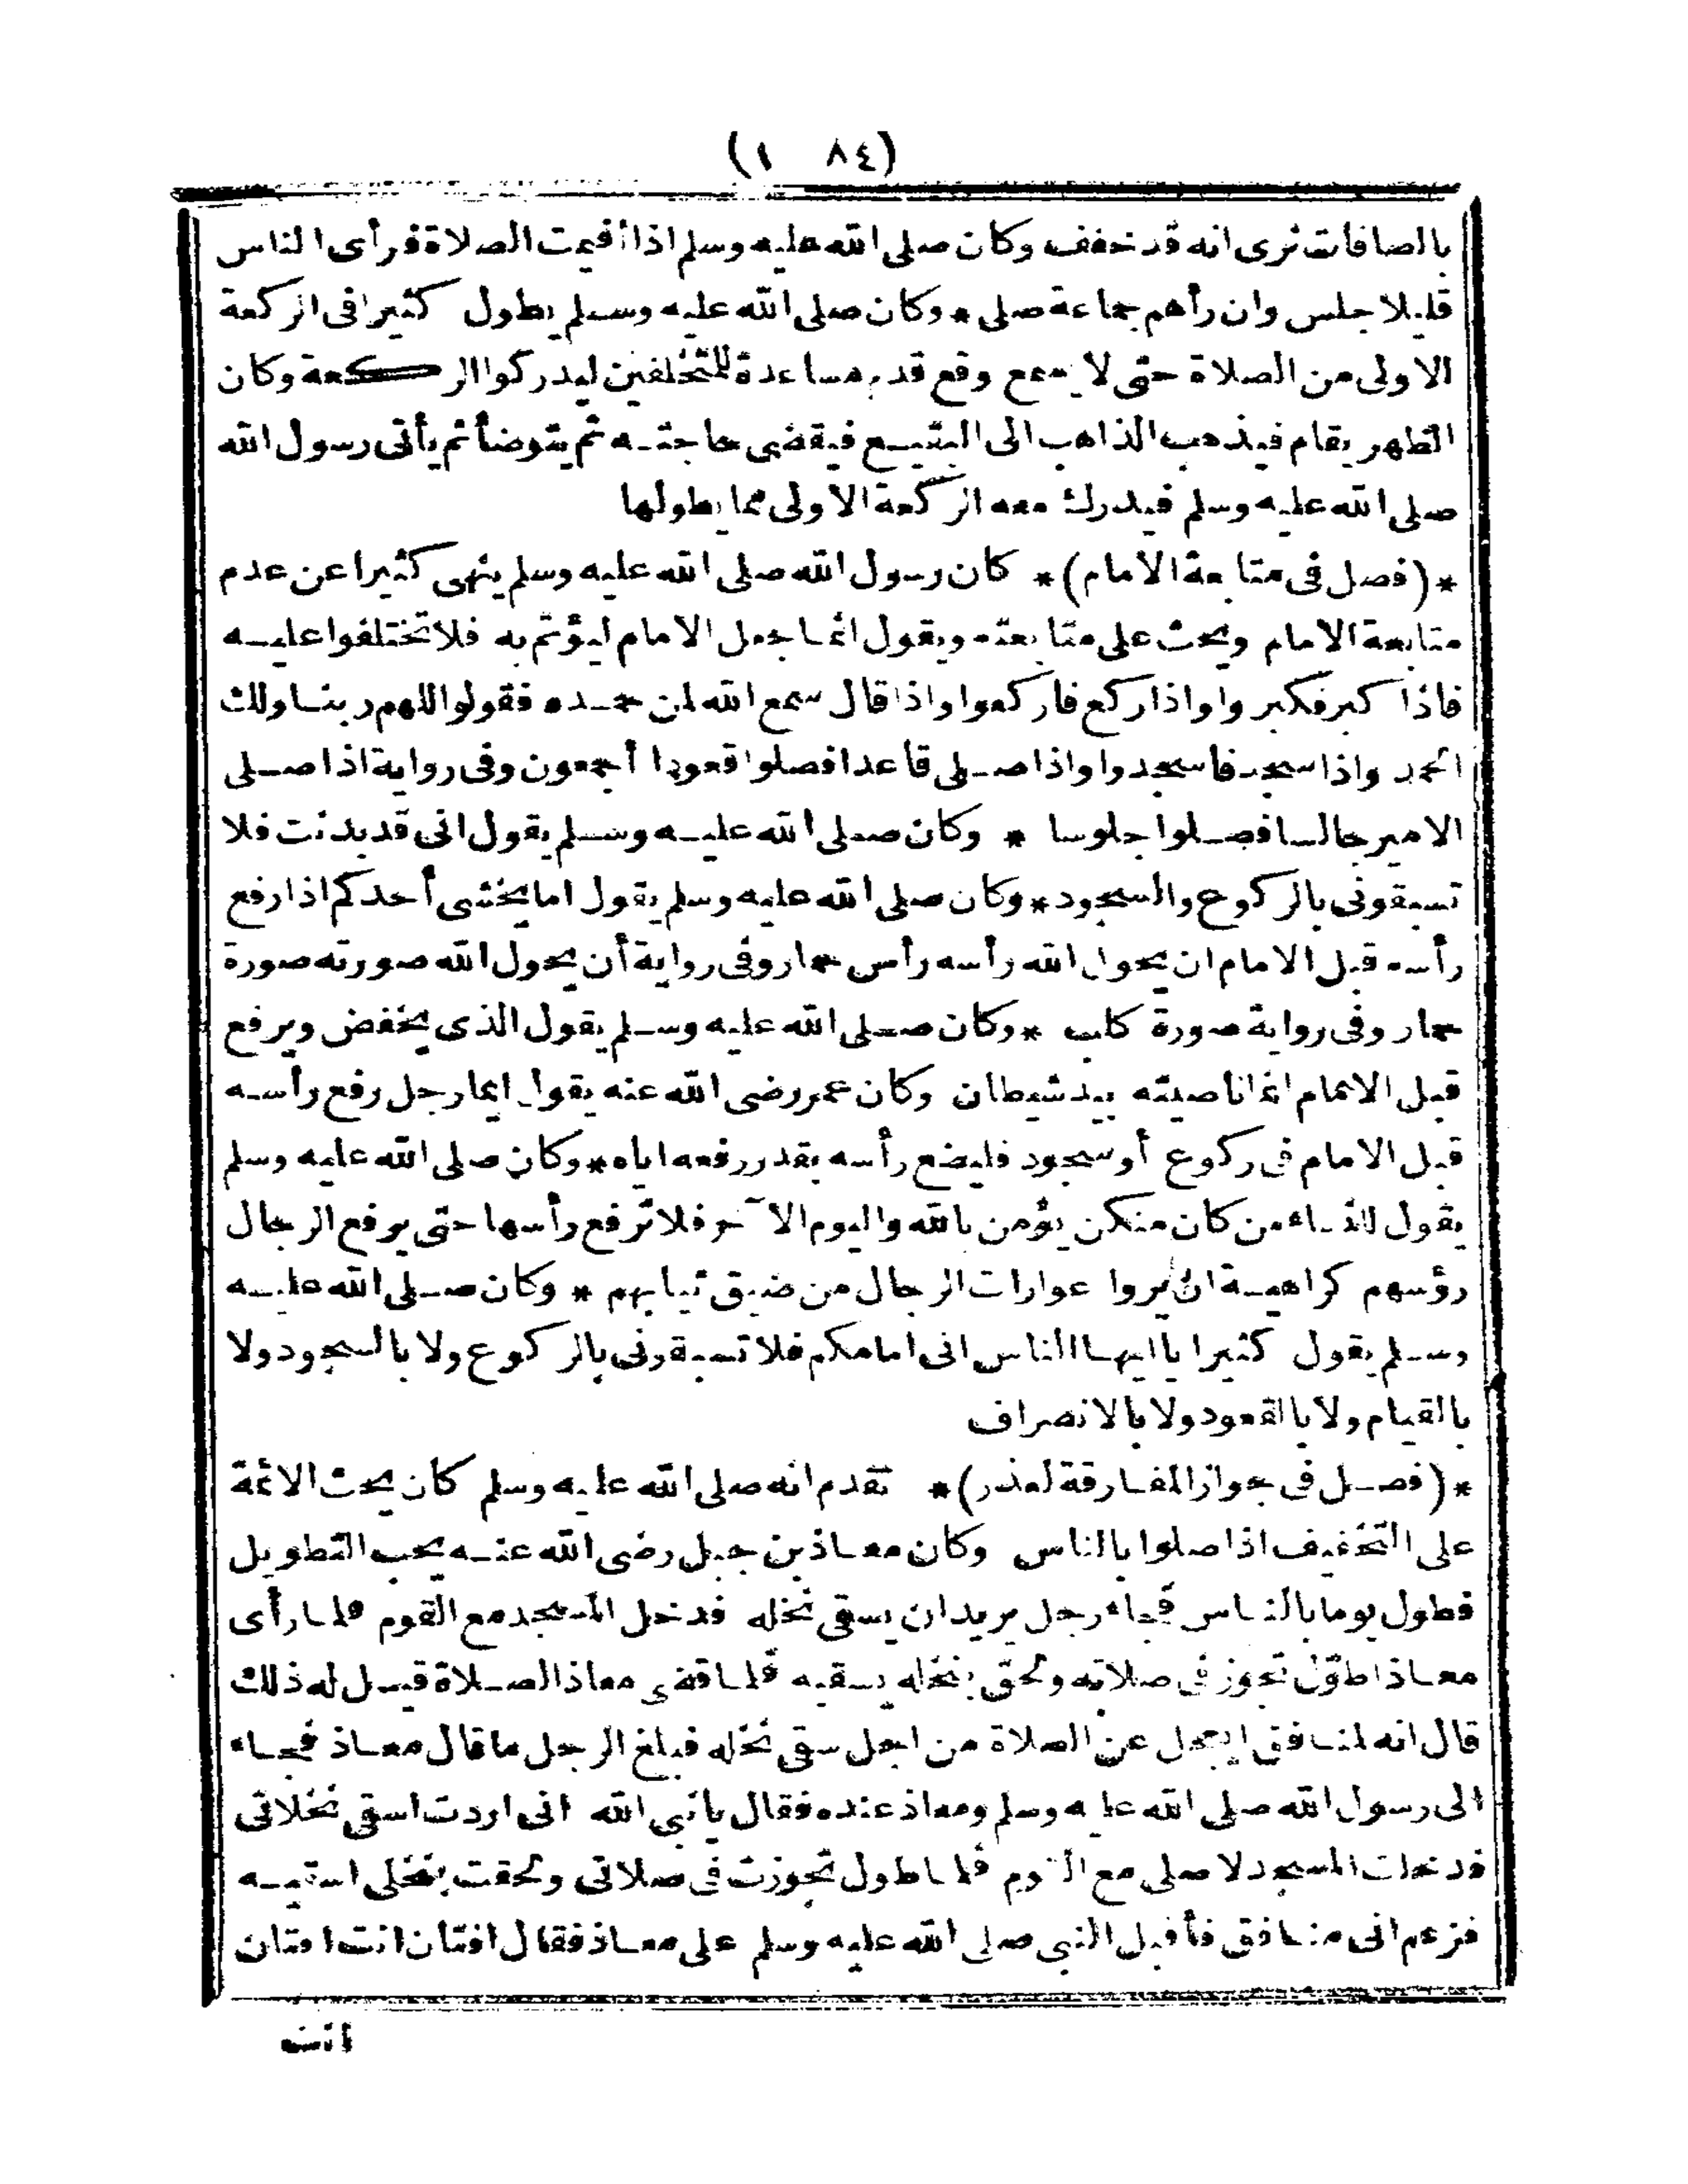 (١٨٤)
بالصافات نرى انه قد خفف وكان صلى الله عليه وسلم اذا أقيمت الصلاة فرأى الناس
قليلا جلس وان رأهم جماعة صلى * وكان صلى الله عليه وسلم يطول كثيرا فى الركعة
الاولى من الصلاة حتى لا يسمع وقع قدم مساعدة للمتخلفين ليدركوا الركعة وكان
الظهر يقام فيذهب الذاهب الى البقيع فيقضى حاجته ثم يتوضأ ثم يأتى رسول الله
صلى الله عليه وسلم فيدرك معه الركعة الاولى مما يطولها
*(فصل فى متابعة الامام)* كان رسول الله صلى الله عليه وسلم ينهى كثيرا عن عدم
متابعة الامام ويحث على متابعته ويقول انما جعل الامام ليؤتم به فلا تختلفوا عليه
فاذا كبر فكبر وا واذا ركع فاركعوا واذا قال سمع الله لمن حمده فقولوا اللهم ربنا ولك
الحمد واذا سجد فاسجدوا واذا صلى قاعدا فصلوا قعودا أجمعون وفى رواية اذا صلى
الامير جالسا فصلوا جلوسا * وكان صلى الله عليه وسلم يقول انى قد بدنت فلا
تسبقونى بالركوع والسجود * وكان صلى الله عليه وسلم يقول اما يخشى أحدكم اذا رفع
رأسه قبل الامام ان يحول الله رأسه رأس حمار وفى رواية أن يحول الله صورته صورة
حمار وفى رواية صورة كلب * وكان صلى الله عليه وسلم يقول الذى يخفض ويرفع
قبل الامام انما ناصيته بيد شيطان وكان عمر رضى الله عنه يقول ايما رجل رفع رأسه
قبل الامام فى ركوع أو سجود فليضع رأسه بقدر رفعه اياه * وكان صلى الله عليه وسلم
يقول للنساء من كان منكن يؤمن بالله واليوم الآخر فلا ترفع رأسها حتى يرفع الرجال
رؤسهم كراهية ان يروا عوارات الرجال من ضيق ثيابهم * وكان صلى الله عليه
وسلم يقول كثيرا يا ايها الناس انى امامكم فلا تسبقونى بالركوع ولا بالسجود ولا
بالقيام ولا بالقعود ولا بالانصراف
*(فصل فى جواز المفارقة لعذر)* تقدم انه صلى الله عليه وسلم كان يحث الائمة
على التخفيف اذا صلوا بالناس وكان معاذ بن جبل رضى الله عنه يحب التطويل
فطول يوما بالناس فجاء رجل يريد ان يسقى نخله فدخل المسجد مع القوم فلما رأى
معاذا طوّل تجوز فى صلاته ولحق بنخله يسقيه فلما قضى معاذ الصلاة قيل له ذلك
قال انه لمنافق ايعجل عن الصلاة من اجل سقى نخله فبلغ الرجل ما قال معاذ فجاء
الى رسول الله صلى الله عليه وسلم ومعاذ عنده فقال يا نبى الله انى اردت اسقى نخلاتى
فدخلت المسجد لاصلى مع القوم فلما طول تجوزت فى صلاتى ولحقت بنخلى اسقيه
فزعم انى منافق فأقبل النبى صلى الله عليه وسلم على معاذ فقال افتان انت افتان
انت